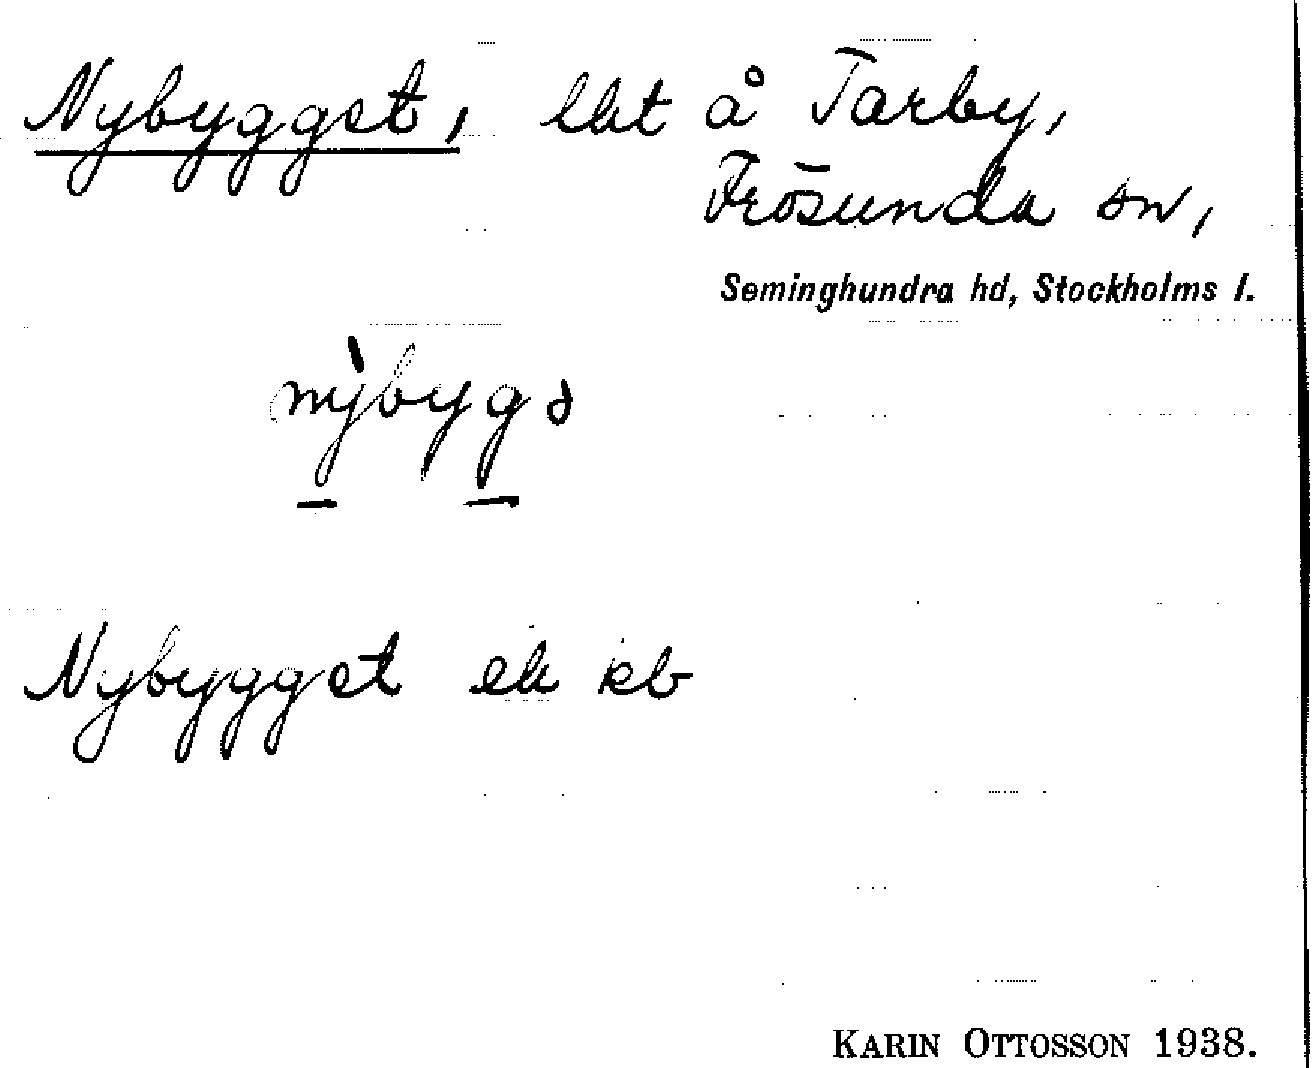 Nybygget, lht å Tarby,
Frösunda sn,
Seminghundra hd, Stockholms l.
nỳbygə
Nybygget ek kb
KARIN OTTOSSON 1938.